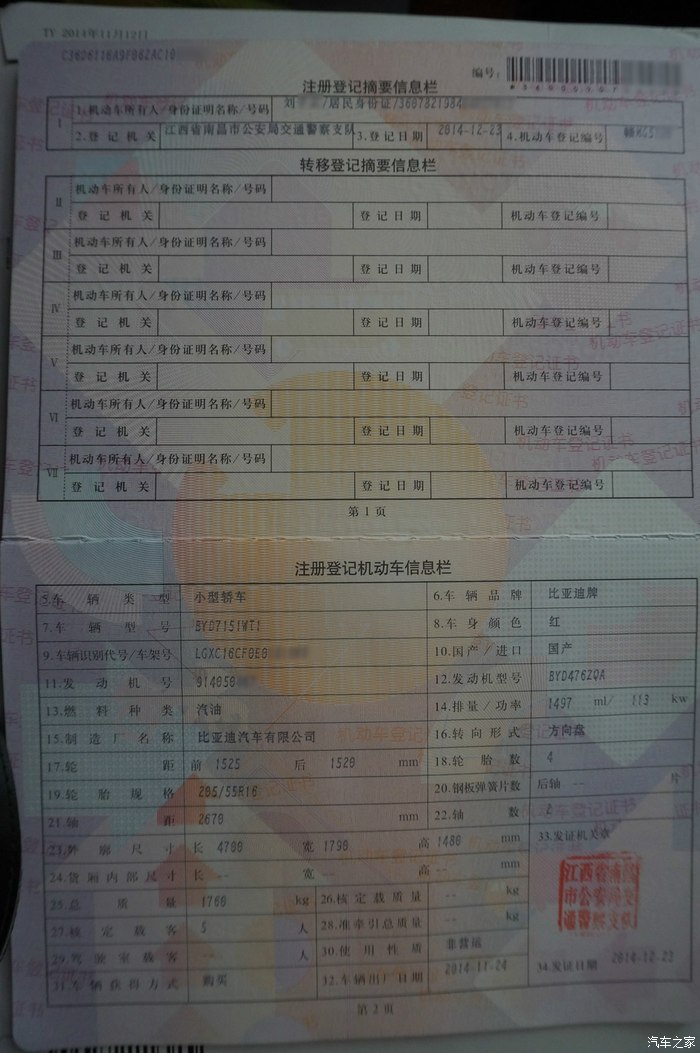 TY 2014年11月12日
编号:
注册登记摘要信息栏
I
1.机动车所有人/身份证明名称/号码 刘 /居民身份证/3607821984
2.登记机关 江西省南昌市公安局交通警察支队 3.登记日期 2014-12-23 4.机动车登记编号
转移登记摘要信息栏
II
机动车所有人/身份证明名称/号码
登记机关 登记日期 机动车登记编号
III
机动车所有人/身份证明名称/号码
登记机关 登记日期 机动车登记编号
IV
机动车所有人/身份证明名称/号码
登记机关 登记日期 机动车登记编号
V
机动车所有人/身份证明名称/号码
登记机关 登记日期 机动车登记编号
VI
机动车所有人/身份证明名称/号码
登记机关 登记日期 机动车登记编号
VII
机动车所有人/身份证明名称/号码
登记机关 登记日期 机动车登记编号
第1页
注册登记机动车信息栏
5.车辆类型 小型轿车 6.车辆品牌 比亚迪牌
7.车辆型号 BYD7151WT1 8.车身颜色 红
9.车辆识别代号/车架号 LGXC16CF0E0 10.国产/进口 国产
11.发动机号 914050 12.发动机型号 BYD476ZQA
13.燃料种类 汽油 14.排量/功率 1497 ml/ 113 kw
15.制造厂名称 比亚迪汽车有限公司 16.转向形式 方向盘
17.轮距 前 1525 后 1520 mm 18.轮胎数 4
19.轮胎规格 205/55R16 20.钢板弹簧片数 后轴 -- 片
21.轴距 2670 mm 22.轴数 2
23.外廓尺寸 长 4700 宽 1790 高 1480 mm 33.发证机关章
24.货厢内部尺寸 长 -- 宽 -- 高 -- mm
25.总质量 1760 kg 26.核定载质量 -- kg
27.核定载客 5 人 28.准牵引总质量 -- kg
29.驾驶室载客 -- 人 30.使用性质 非营运
31.车辆获得方式 购买 32.车辆出厂日期 2014-11-24 34.发证日期 2014-12-23
江西省南昌市公安局交通警察支队
第2页
汽车之家